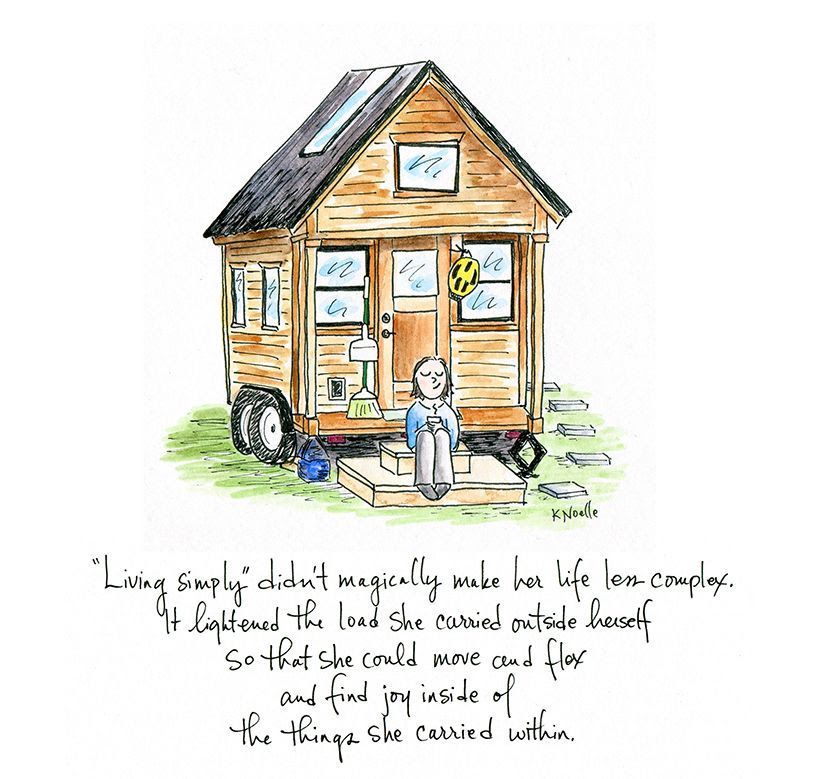 K Noelle
"Living simply" didn't magically make her life less complex.
It lightened the load she carried outside herself
so that she could move and flex
and find joy inside of
the things she carried within.